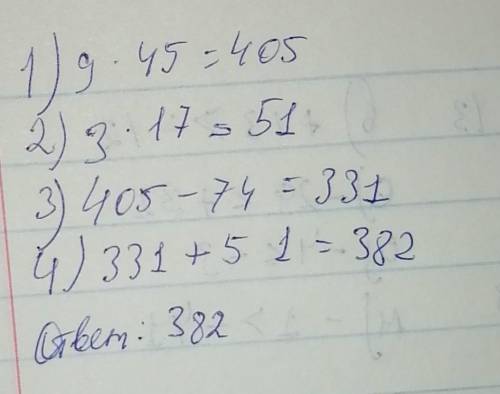 1) 9 · 45 = 405
2) 3 · 17 = 51
3) 405 - 74 = 331
4) 331 + 5 1 = 382
Ответ: 382